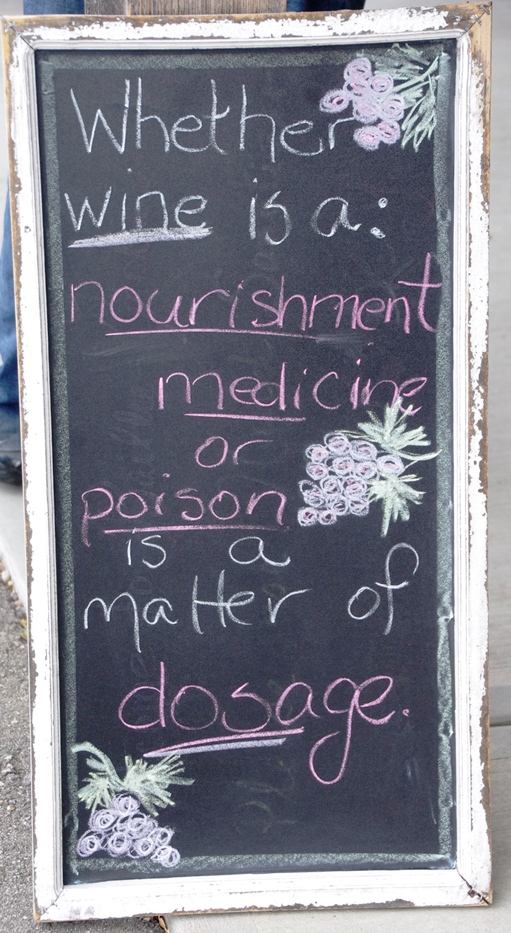 Whether
wine is a:
nourishment
medicine
or
poison
is a
matter of
dosage.